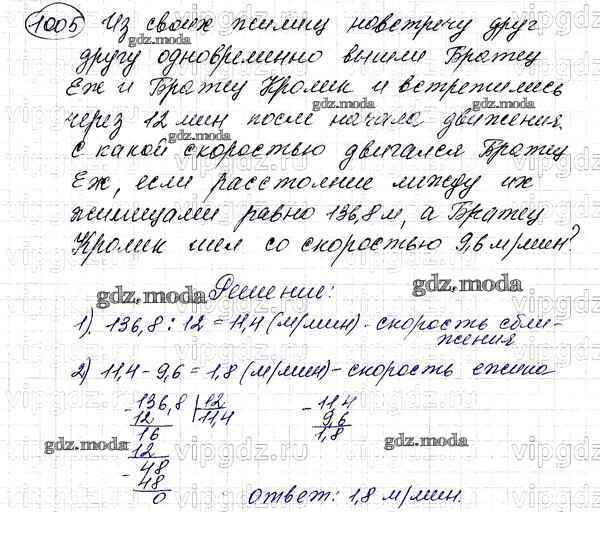 1005 Из своих жилищ навстречу друг
другу одновременно вышли Братец
Еж и Братец Кролик и встретились
через 12 мин после начала движения.
С какой скоростью двигался Братец
Еж, если расстояние между их
жилищами равно 136,8 м, а Братец
Кролик шел со скоростью 9,6 м/мин?
Решение:
1). 136,8 : 12 = 11,4 (м/мин) - скорость сбли-
жения
2) 11,4 - 9,6 = 1,8 (м/мин) - скорость ежика
136,8 | 12 - 11,4
12 11,4 9,6
16 1,8
12
- 48
48
0 ответ: 1,8 м/мин.
gdz.moda
vipgdz.ru